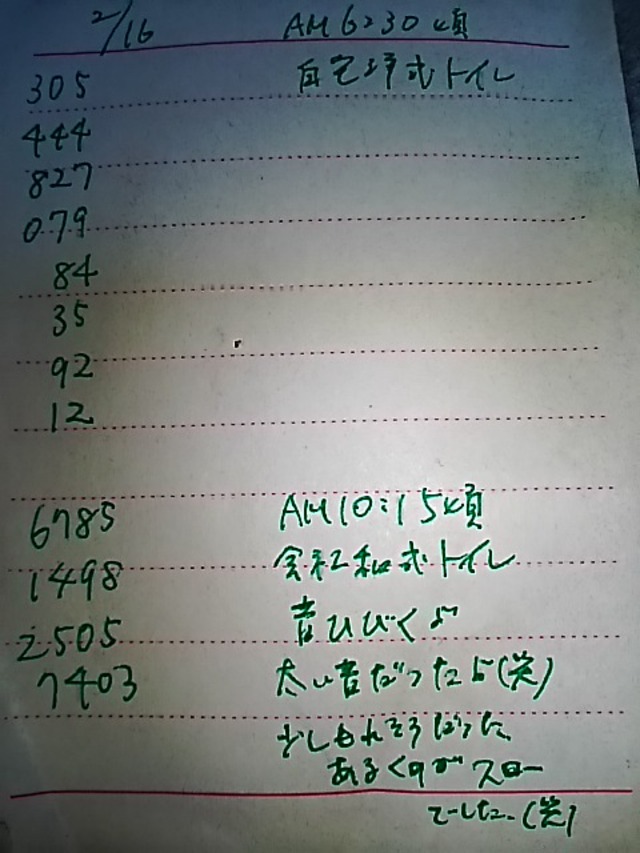 2/16 AM 6:30頃
305 自宅洋式トイレ
444
827
079
84
35
92
12
6785 AM 10:15頃
1498 会社和式トイレ
2505 音ひびくよ
7403 太い音だったよ(笑)
少しもれそうだった
あるくのがスロー
でした。(笑)